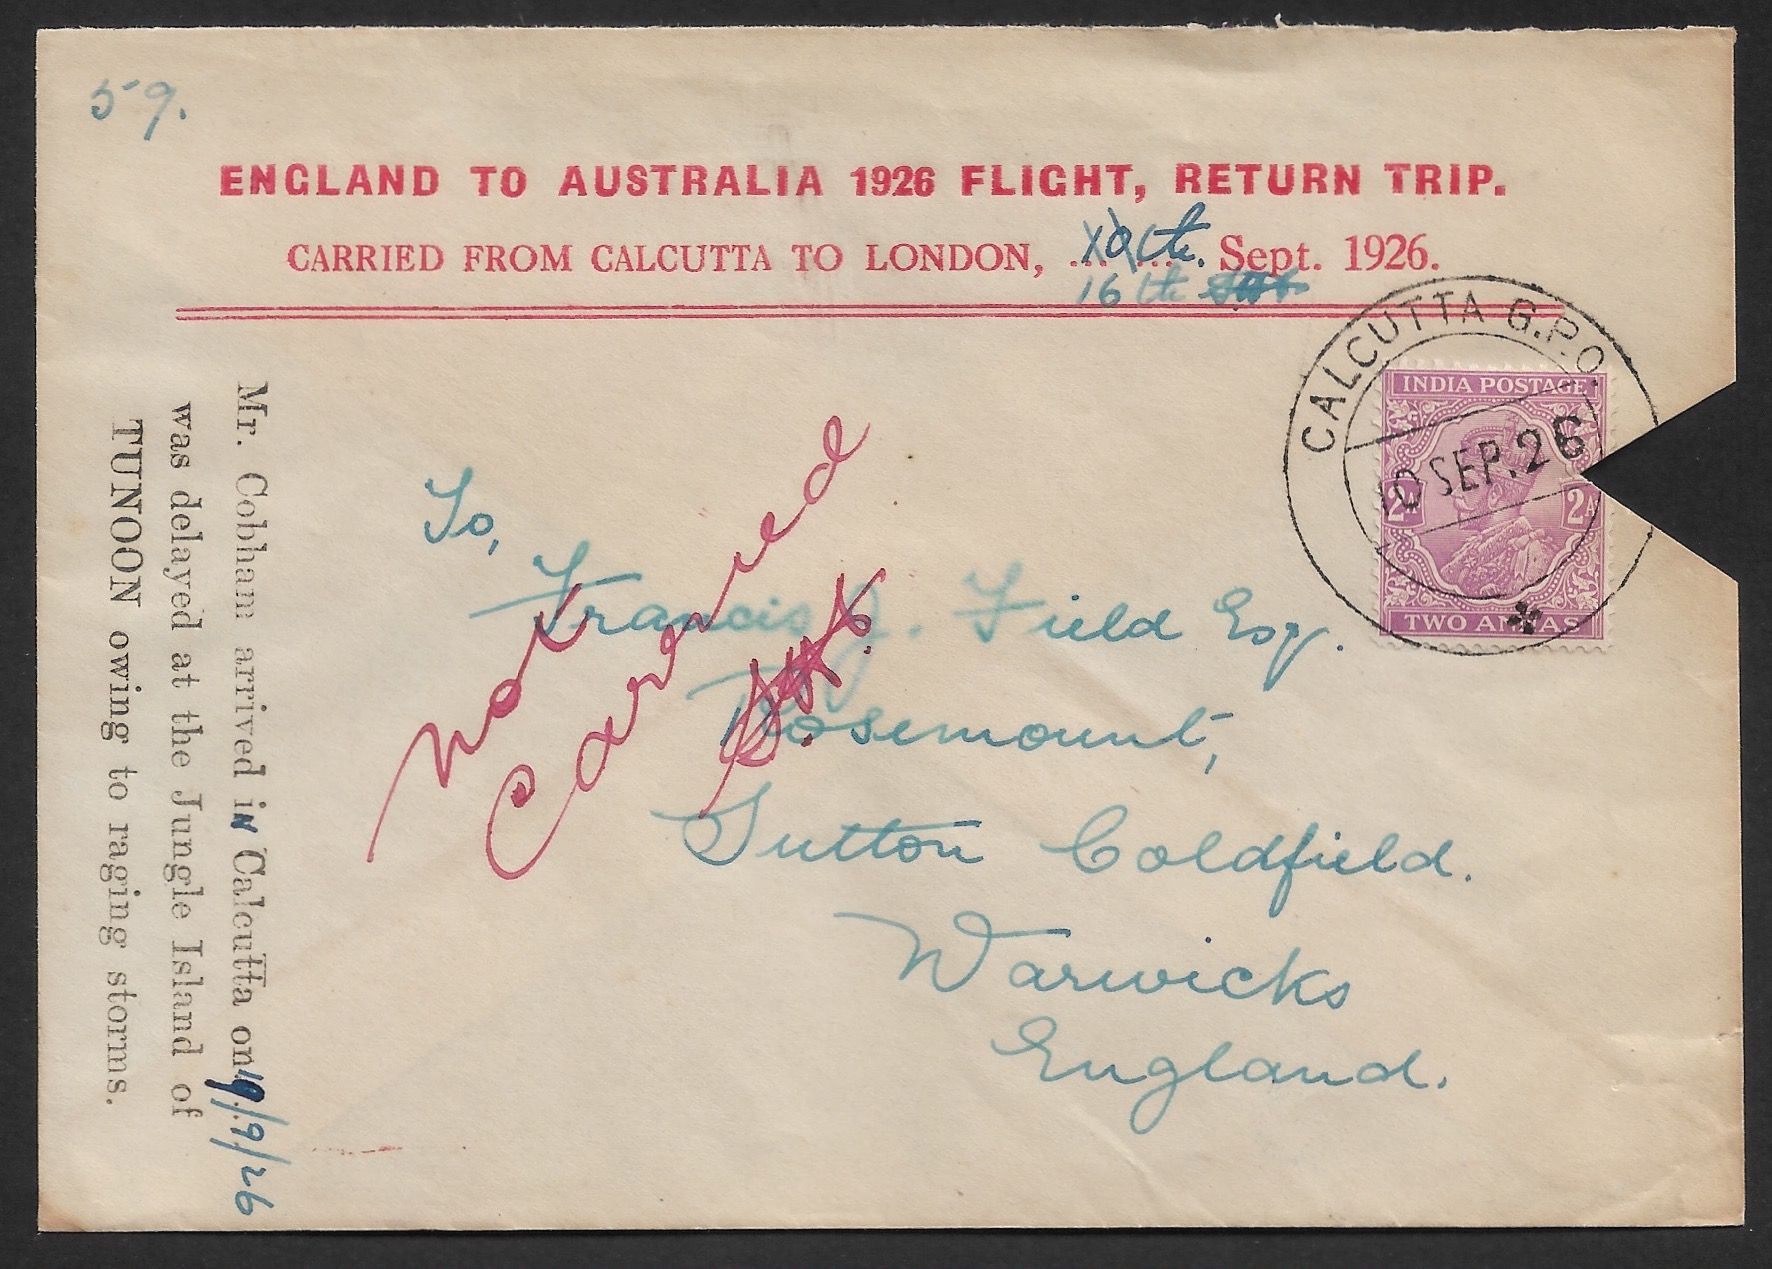 59.
ENGLAND TO AUSTRALIA 1926 FLIGHT, RETURN TRIP.
CARRIED FROM CALCUTTA TO LONDON, Sept. 1926.
16th
CALCUTTA G.P.O.
10 SEP. 26
INDIA POSTAGE
2A 2A
TWO ANNAS
Mr. Cobham arrived in Calcutta on 19/9/26
was delayed at the Jungle Island of
TUNOON owing to raging storms.
not
Carried
To,
Francis J. Field Esq.
Rosemount,
Sutton Coldfield.
Warwicks
England.